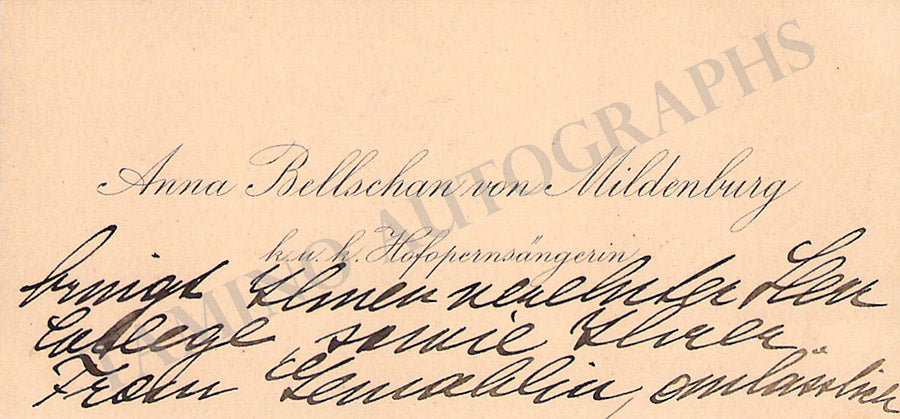 Anna Bellschan von Mildenburg
k. u. k. Hofopernsängerin
bringt Ihnen verehrter Herr
College sowie Ihrer
Frau Gemahlin, anlässlich
TAMINO AUTOGRAPHS